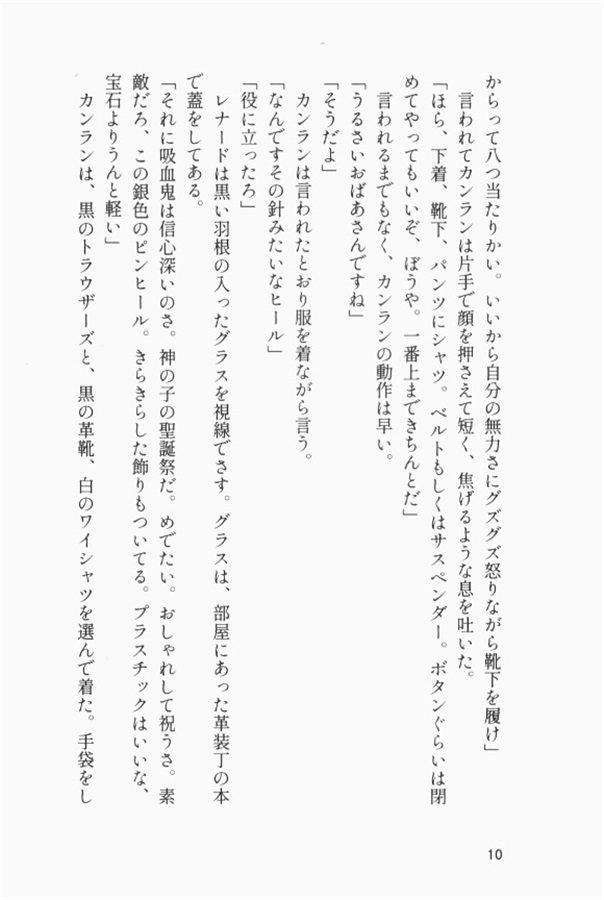 からって八つ当たりかい。いいから自分の無力さにグズグズ怒りながら靴下を履け」
　言われてカンランは片手で顔を押さえて短く、焦げるような息を吐いた。
「ほら、下着、靴下、パンツにシャツ。ベルトもしくはサスペンダー。ボタンぐらいは閉
めてやってもいいぞ、ぼうや。一番上まできちんとだ」
　言われるまでもなく、カンランの動作は早い。
「うるさいおばあさんですね」
「そうだよ」
　カンランは言われたとおり服を着ながら言う。
「なんですその針みたいなヒール」
「役に立ったろ」
　レナードは黒い羽根の入ったグラスを視線でさす。グラスは、部屋にあった革装丁の本
で蓋をしてある。
「それに吸血鬼は信心深いのさ。神の子の聖誕祭だ。めでたい。おしゃれして祝うさ。素
敵だろ、この銀色のピンヒール。きらきらした飾りもついてる。プラスチックはいいな、
宝石よりうんと軽い」
　カンランは、黒のトラウザーズと、黒の革靴、白のワイシャツを選んで着た。手袋をし
10